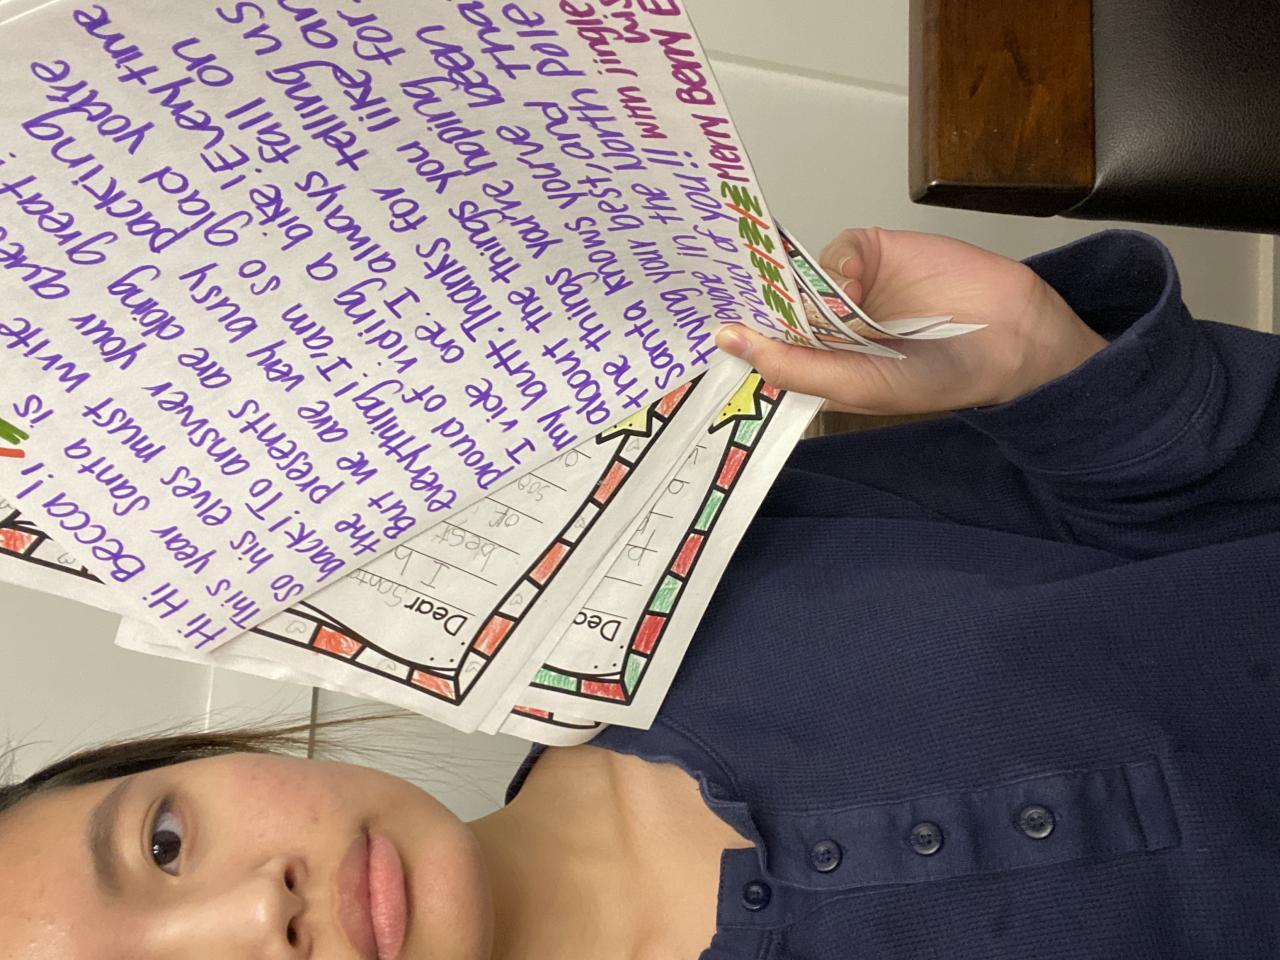 Hi Hi Becca!!
This year Santa is
So his elves must write
back! To answer your ques
the presents are doing great!
But we are very busy packing
everything! I am so glad you're
proud of riding a bike! Every time
I ride one. I always fall on
my butt. Thanks for telling us
about the things you like and
the things you're hoping for.
Santa knows you've been
trying your best, and Tha
in the North Pole
of you!! With Jingle
Wis
Merry Berry E
Dear Santa
I h
best
or
soo
Dea